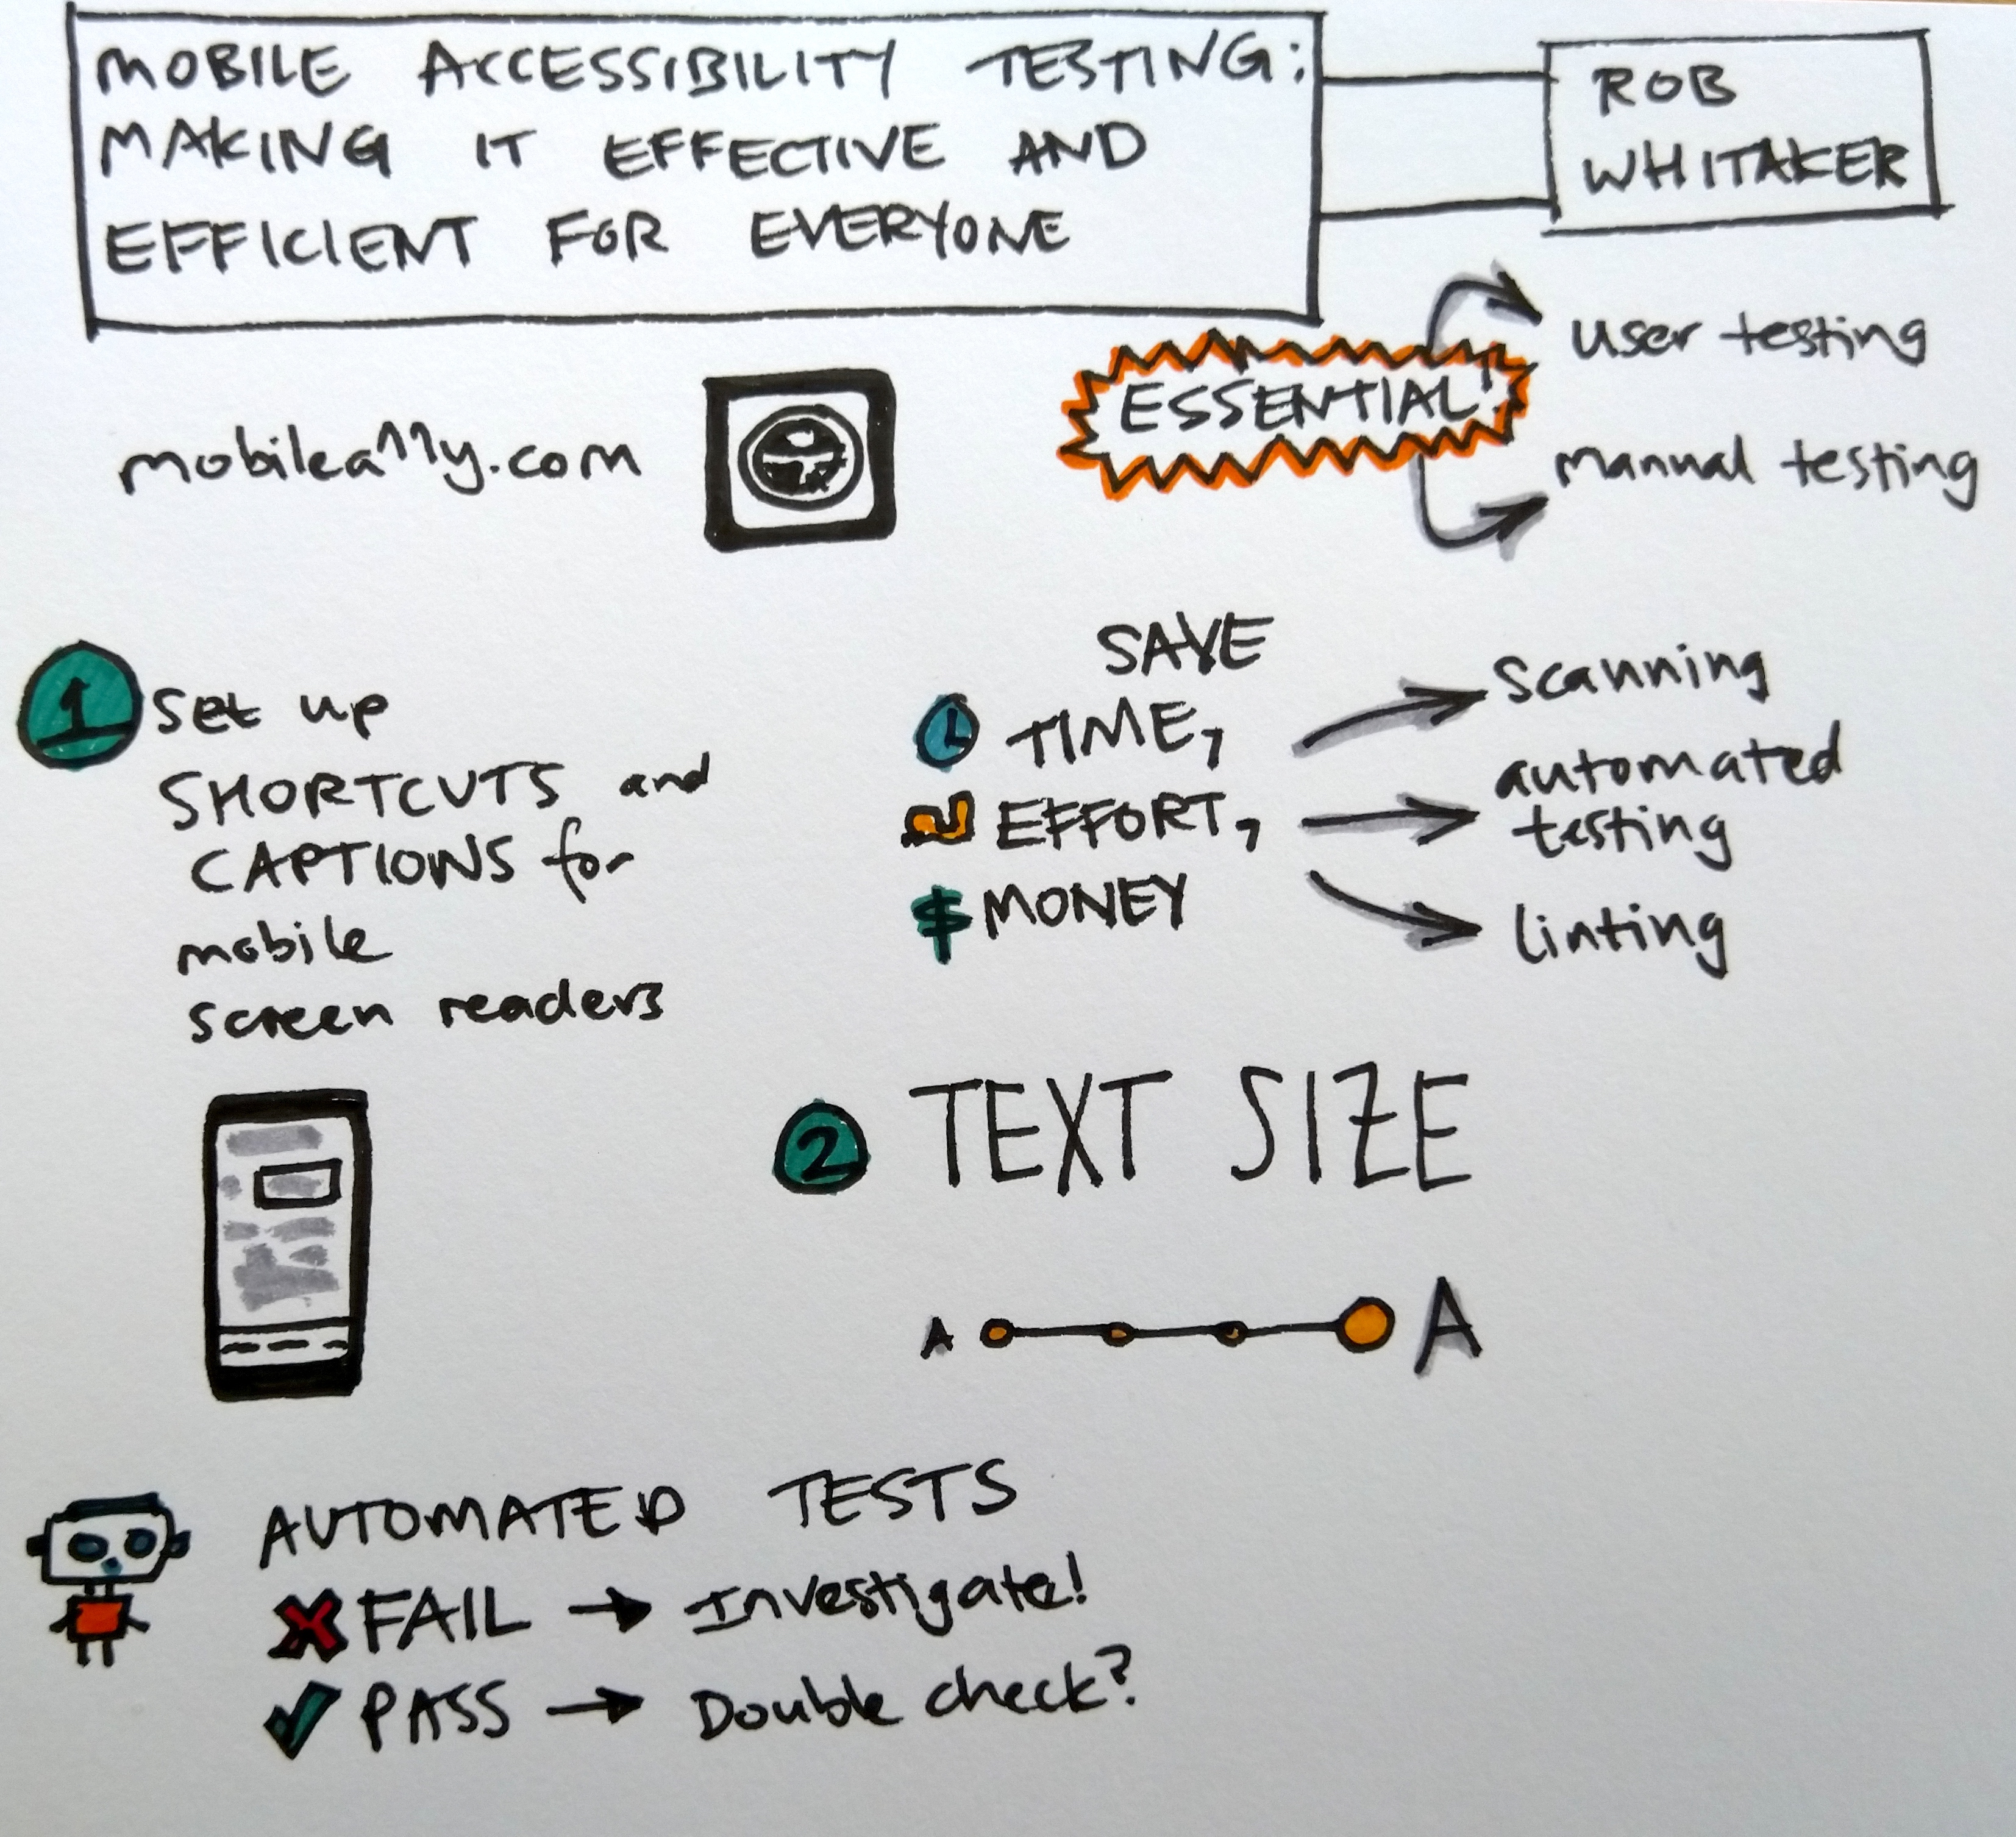 MOBILE ACCESSIBILITY TESTING:
MAKING IT EFFECTIVE AND
EFFICIENT FOR EVERYONE
ROB
WHITAKER
mobilea11y.com
ESSENTIAL!
user testing
manual testing
1 set up
SHORTCUTS and
CAPTIONS for
mobile
screen readers
SAVE
TIME,
EFFORT,
$ MONEY
scanning
automated
testing
linting
2 TEXT SIZE
A A
AUTOMATED TESTS
FAIL → Investigate!
PASS → Double check?